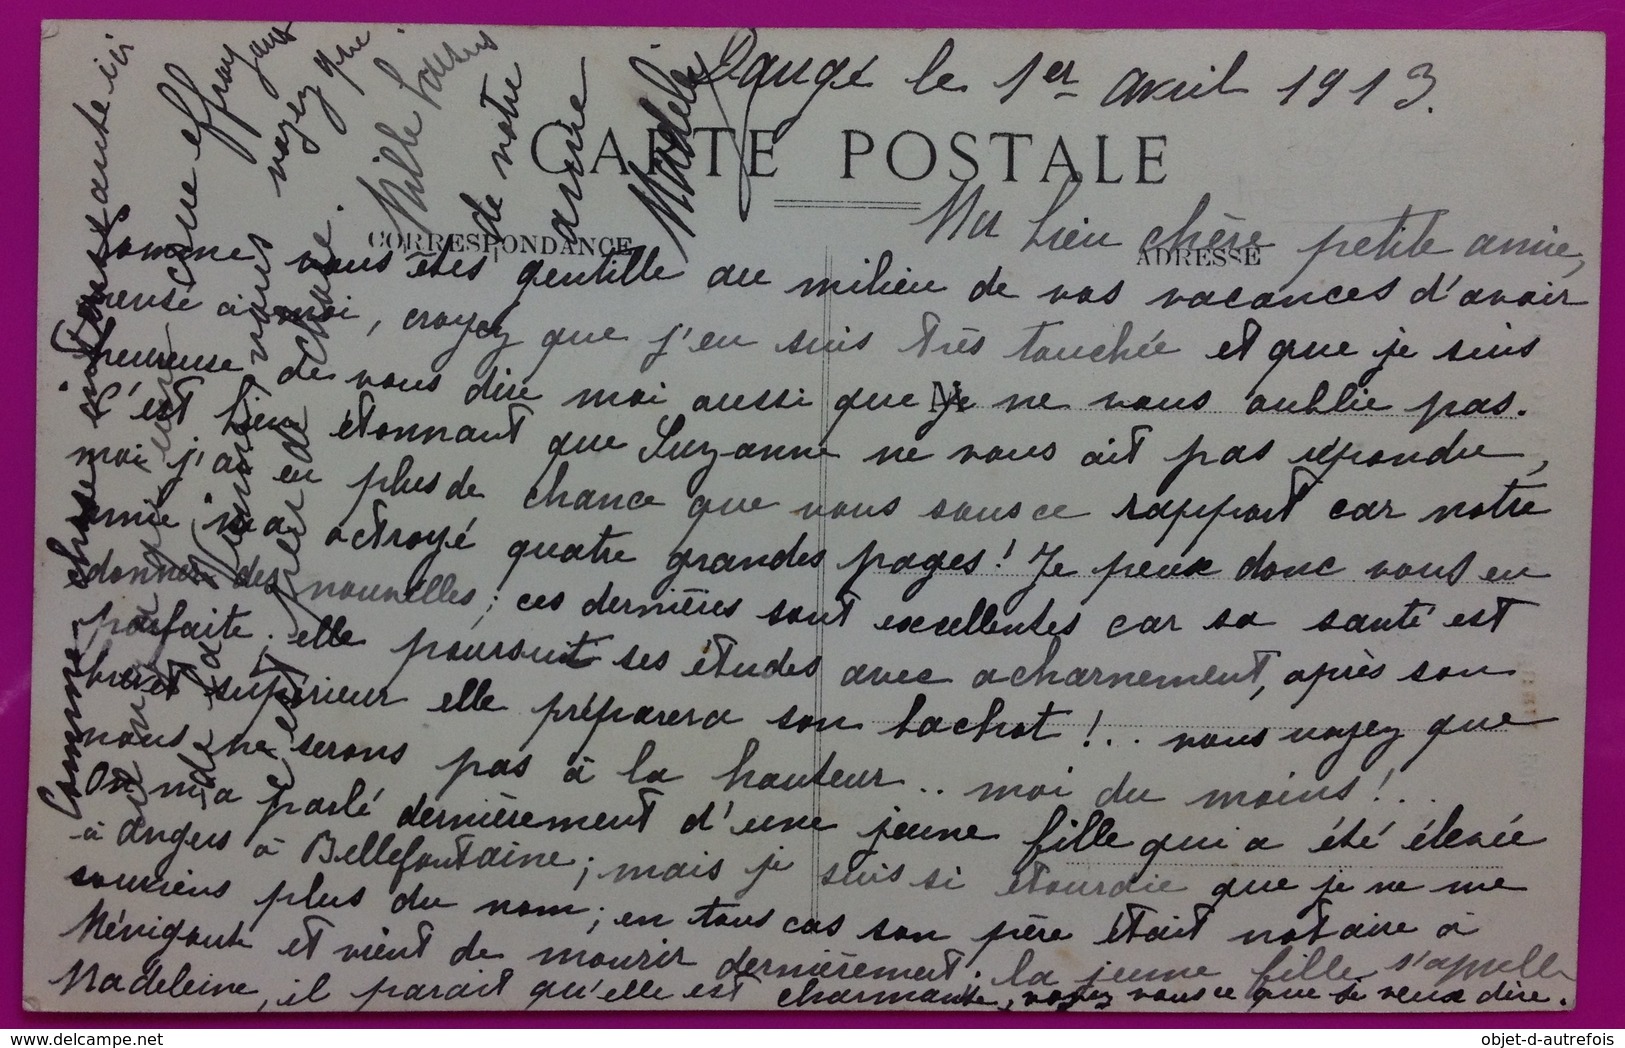 Dangé le 1er avril 1913.
CARTE POSTALE
CORRESPONDANCE
ADRESSE
Ma bien chère petite amie,
Comme vous êtes gentille au milieu de vos vacances d'avoir
pensé à moi, croyez que j'en suis très touchée et que je suis
heureuse de vous dire moi aussi que je ne vous oublie pas.
C'est bien étonnant que Suzanne ne vous ait pas répondu,
moi j'ai eu plus de chance que vous sous ce rapport car notre
amie m'a octroyé quatre grandes pages! Je peux donc vous en
donner des nouvelles; ces dernières sont excellentes car sa santé est
parfaite; elle poursuit ses études avec acharnement, après son
brevet supérieur elle préparera son bachot!.. vous voyez que
nous ne serons pas à la hauteur.. moi du moins!..
On m'a parlé dernièrement d'une jeune fille qui a été élevée
à Angers à Bellefontaine; mais je suis si étourdie que je ne me
souviens plus du nom; en tous cas son père était notaire à
Ménigoute et vient de mourir dernièrement. la jeune fille s'appelle
Madeleine, il parait qu'elle est charmante, voyez vous ce que je veux dire.
Comme chose intéressante ici
une effrayante
voyez que
chose.
Mille baisers
de votre
amie
Madele